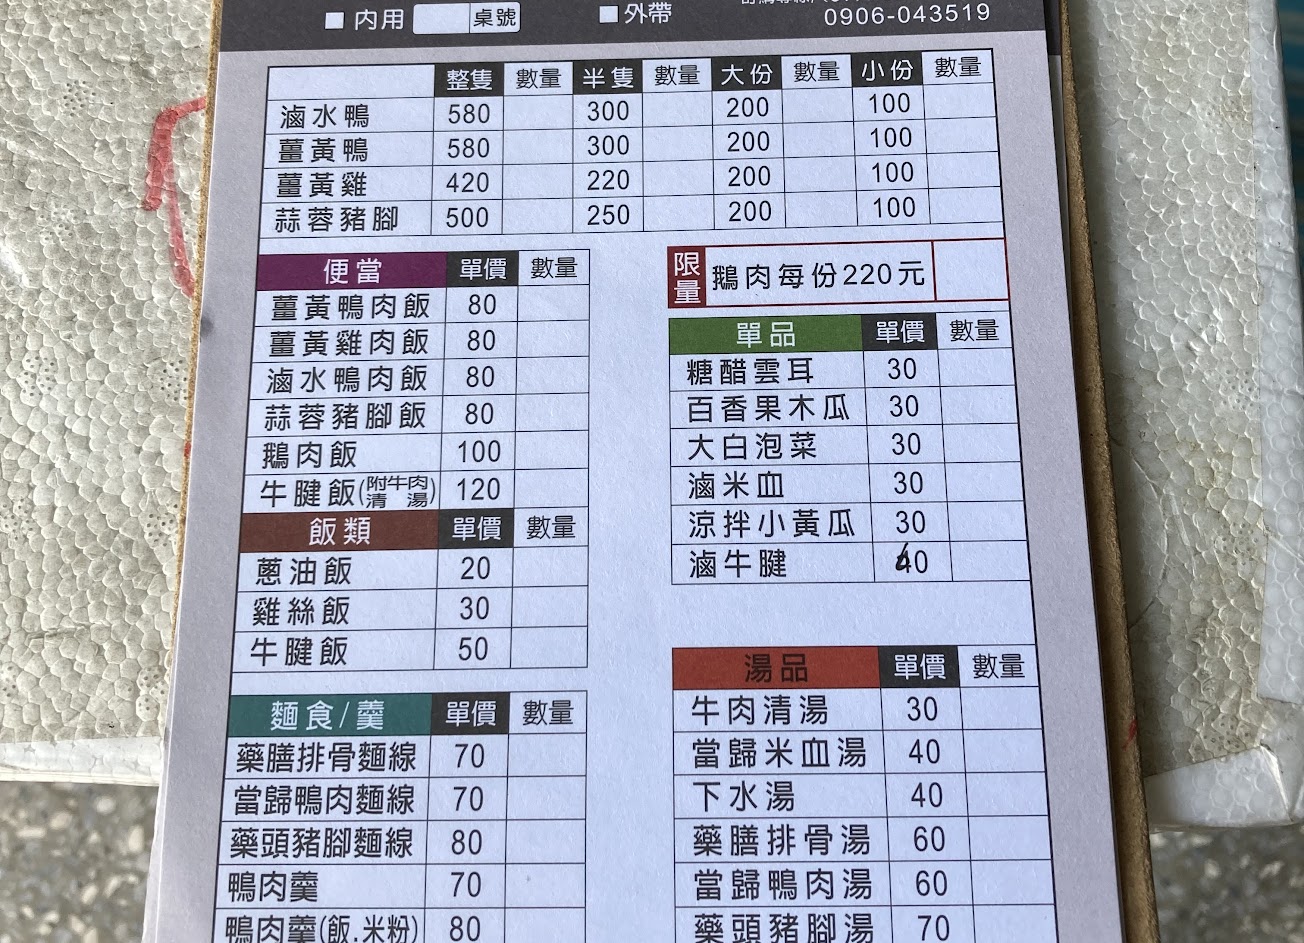 ■內用 桌號 ■外帶
0906-043519
整隻 數量 半隻 數量 大份 數量 小份 數量
滷水鴨 580 300 200 100
薑黃鴨 580 300 200 100
薑黃雞 420 220 200 100
蒜蓉豬腳 500 250 200 100
便當 單價 數量
薑黃鴨肉飯 80
薑黃雞肉飯 80
滷水鴨肉飯 80
蒜蓉豬腳飯 80
鵝肉飯 100
牛腱飯(附牛肉清湯) 120
飯類 單價 數量
蔥油飯 20
雞絲飯 30
牛腱飯 50
麵食/羹 單價 數量
藥膳排骨麵線 70
當歸鴨肉麵線 70
藥頭豬腳麵線 80
鴨肉羹 70
鴨肉羹(飯.米粉) 80
限量 鵝肉每份220元
單品 單價 數量
糖醋雲耳 30
百香果木瓜 30
大白泡菜 30
滷米血 30
涼拌小黃瓜 30
滷牛腱 60
湯品 單價 數量
牛肉清湯 30
當歸米血湯 40
下水湯 40
藥膳排骨湯 60
當歸鴨肉湯 60
藥頭豬腳湯 70